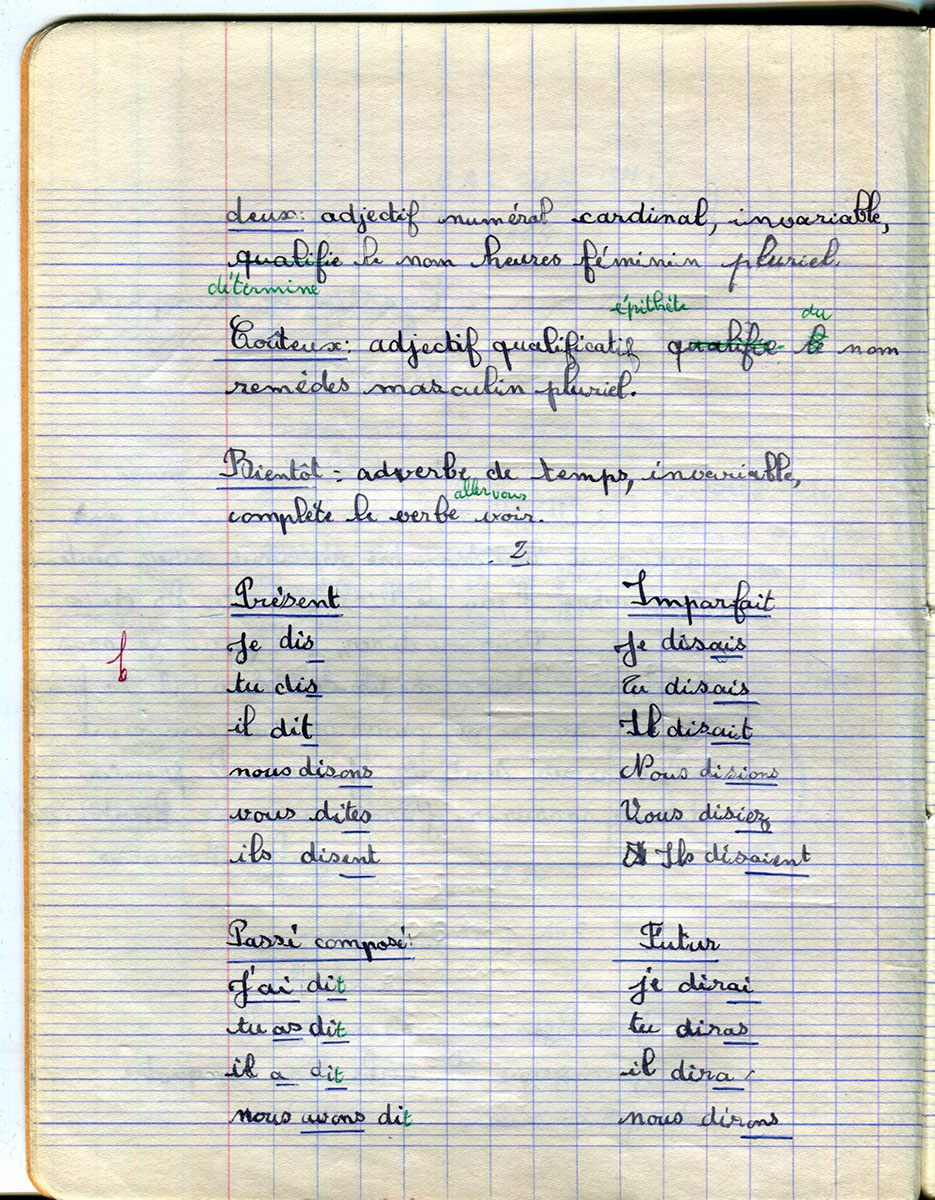 deux: adjectif numéral cardinal, invariable,
qualifie le nom heures féminin pluriel
détermine
épithète du
Coûteux: adjectif qualificatif qualifie le nom
remèdes masculin pluriel.
Bientôt: adverbe de temps, invariable,
allez vous
complète le verbe voir.
2
Présent Imparfait
je dis Je disais
tu dis Tu disais
il dit Il disait
nous disons Nous disions
vous dites Vous disiez
ils disent Ils disaient
Passé composé: Futur
J'ai dit je dirai
tu as dit tu diras
il a dit il dira
nous avons dit nous dirons